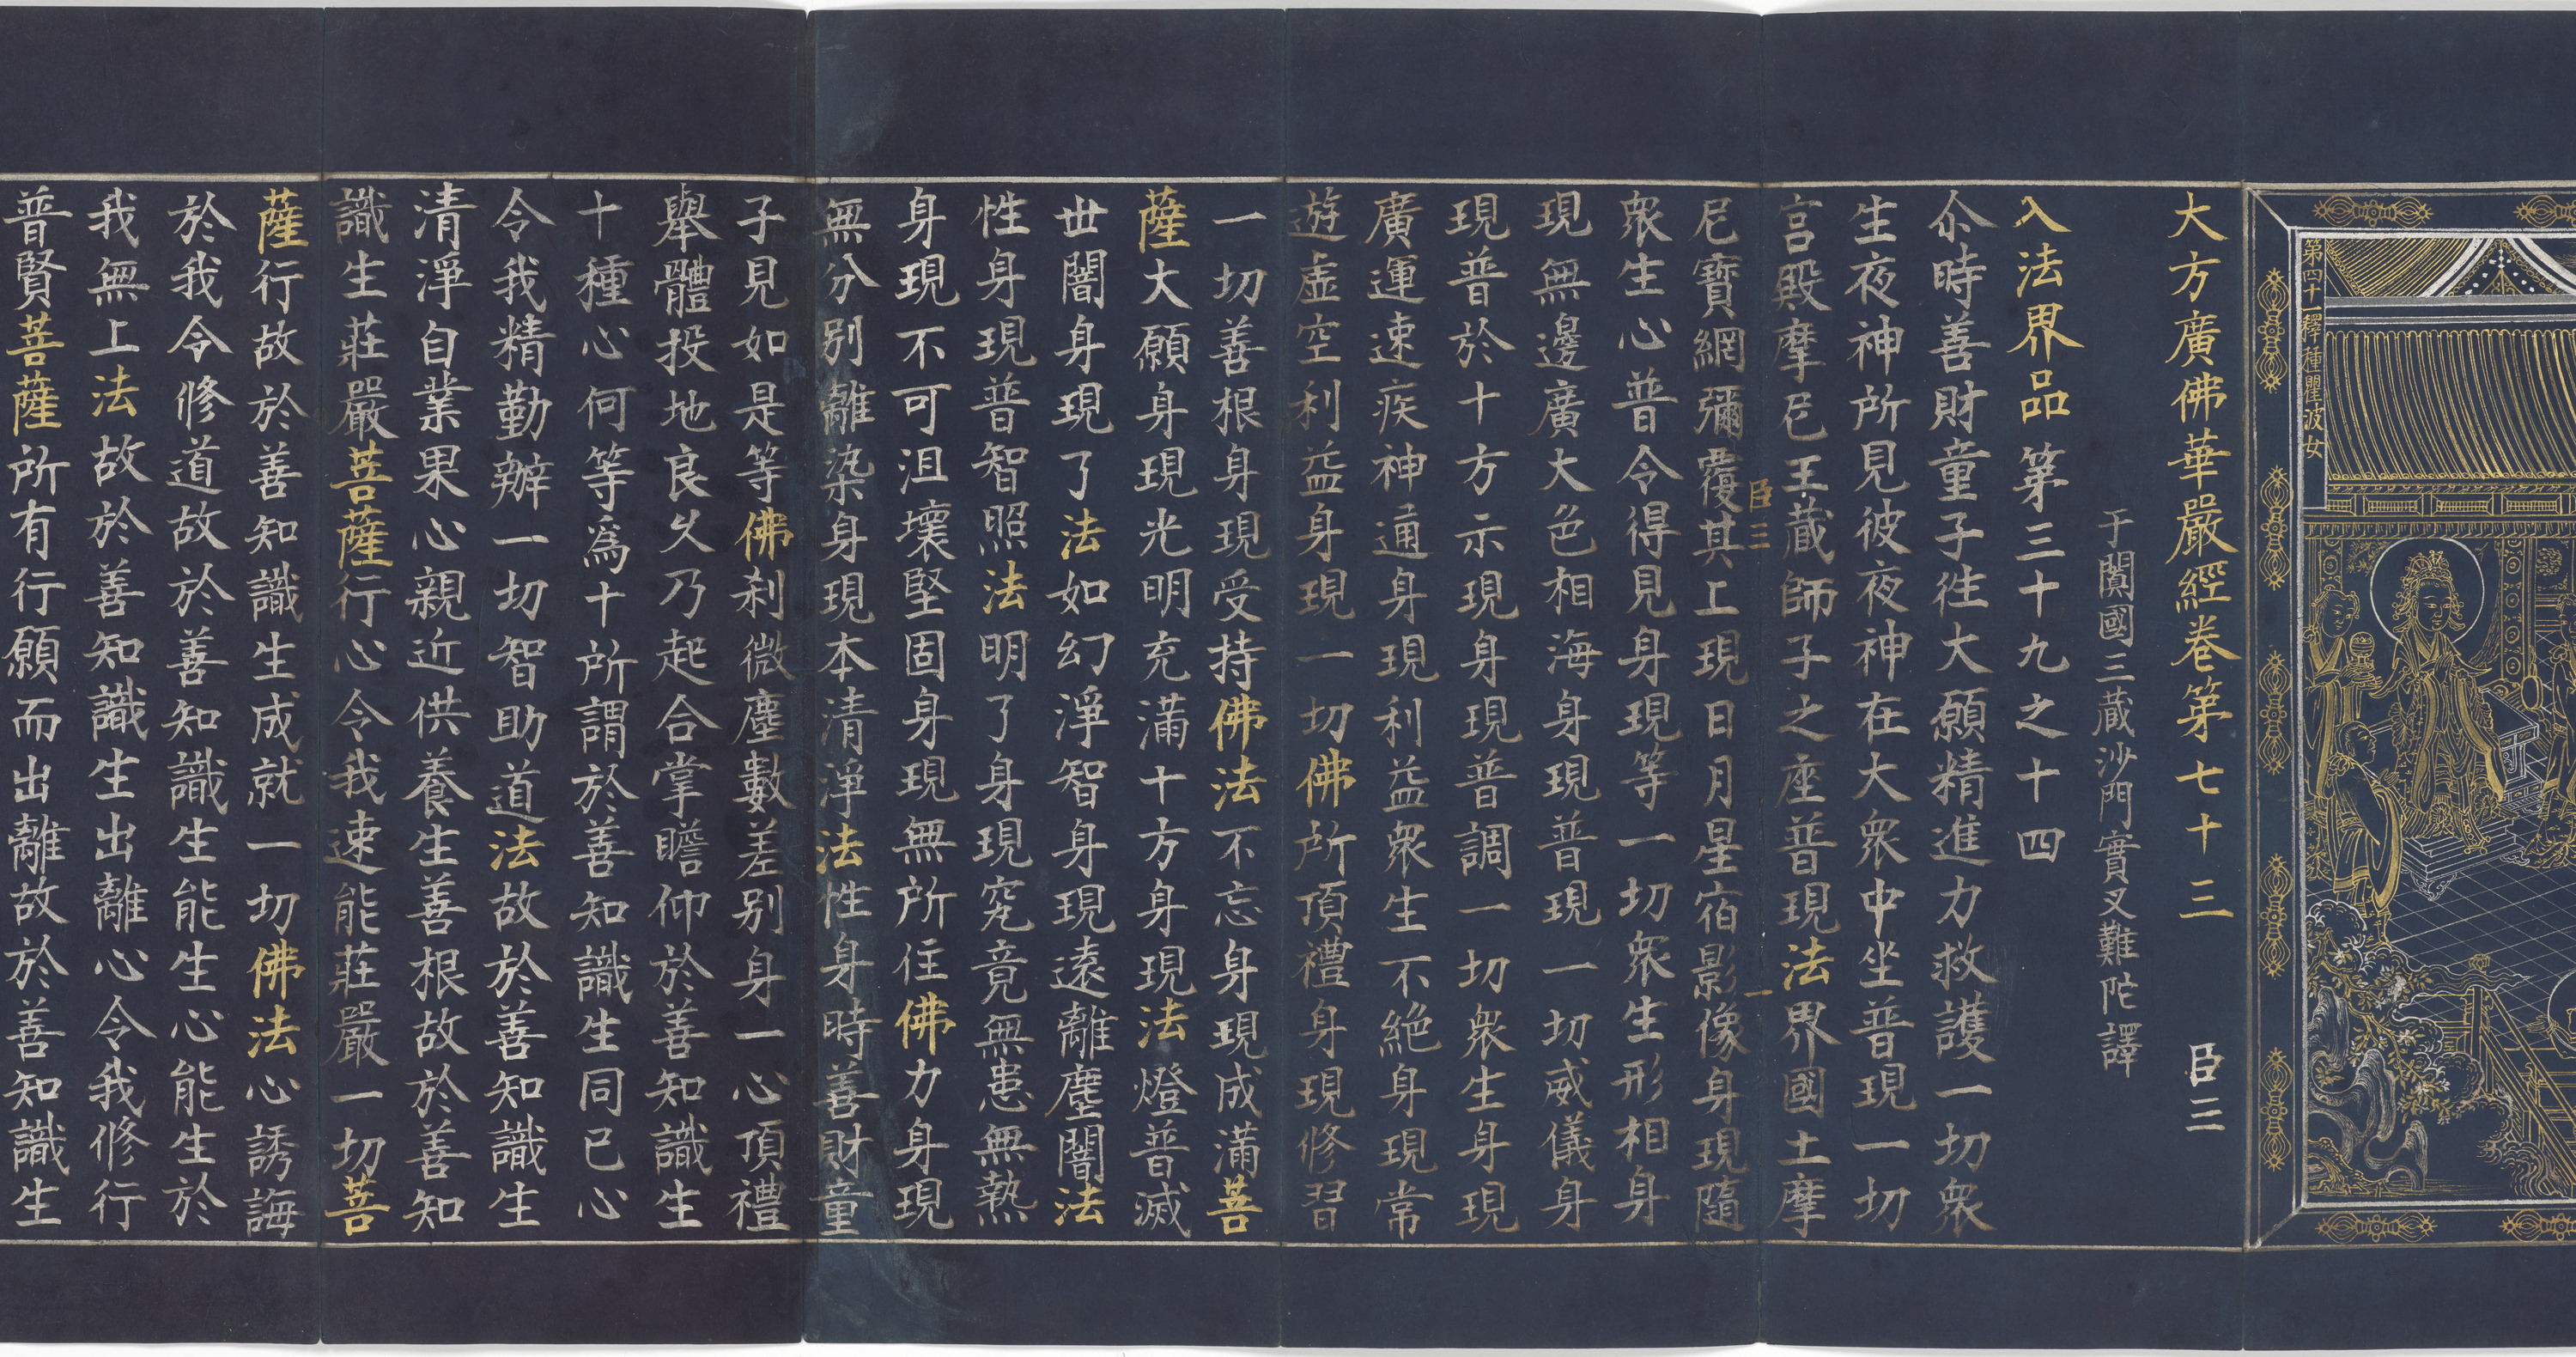 第四十一釋種瞿波女
大方廣佛華嚴經卷第七十三 臣三
于闐國三藏沙門實叉難陀譯
入法界品第三十九之十四
尒時善財童子往大願精進力救護一切衆
生夜神所見彼夜神在大衆中坐普現一切
宮殿摩尼王藏師子之座普現法界國土摩
臣三 一
尼寶網彌覆其上現日月星宿影像身現隨
衆生心普令得見身現等一切衆生形相身
現無邊廣大色相海身現普現一切威儀身
現普於十方示現身現普調一切衆生身現
廣運速疾神通身現利益衆生不絶身現常
遊虛空利益身現一切佛所頂禮身現修習
一切善根身現受持佛法不忘身現成滿菩
薩大願身現光明充滿十方身現法燈普滅
世闇身現了法如幻淨智身現遠離塵闇法
性身現普智照法明了身現究竟無患無熱
身現不可沮壞堅固身現無所住佛力身現
無分別離染身現本清淨法性身時善財童
子見如是等佛刹微塵數差別身一心頂禮
舉體投地良久乃起合掌瞻仰於善知識生
十種心何等爲十所謂於善知識生同已心
令我精勤辦一切智助道法故於善知識生
清淨自業果心親近供養生善根故於善知
識生莊嚴菩薩行心令我速能莊嚴一切菩
薩行故於善知識生成就一切佛法心誘誨
於我令修道故於善知識生能生心能生於
我無上法故於善知識生出離心令我修行
普賢菩薩所有行願而出離故於善知識生